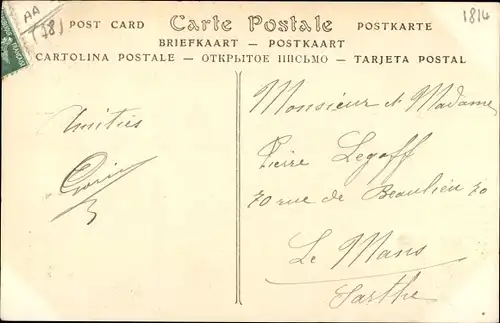 AA
(78)
1814
POST CARD Carte Postale POSTKARTE
BRIEFKAART — POSTKAART
CARTOLINA POSTALE — ОТКРЫТОЕ ПИСЬМО — TARJETA POSTAL
Monsieur et Madame
Amitiés
Pierre Legoff
70 rue de Beaulieu 70
Le Mans
Sarthe